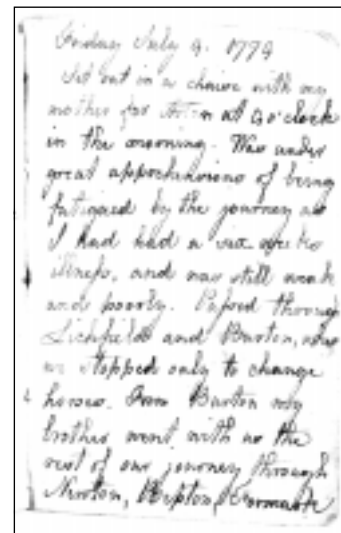 Friday July 9. 1779
Set out in a chaise with my
mother for at 9 o'clock
in the morning. Was under
great apprehensions of being
fatigued by the journey as
I had had a
illness, and was still weak
and poorly. Passed through
Lichfield and Burton, where
we stopped only to change
horses. From Burton my
brother went with us the
rest of our journey through
Newton, Repton,